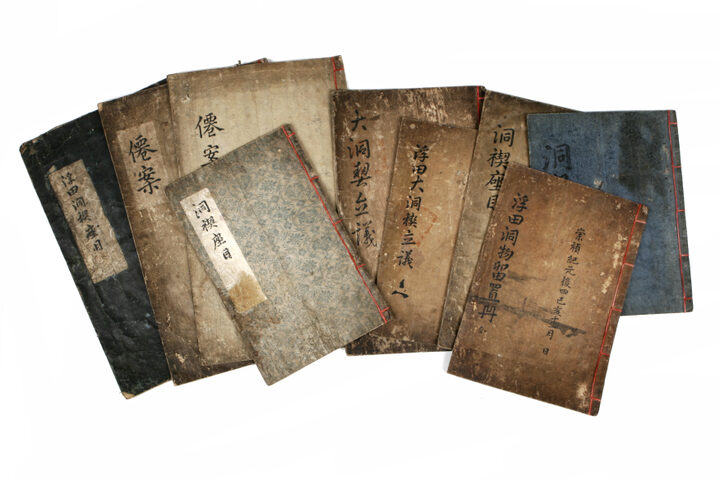 浮田洞禊座目
僊案
僊案
洞禊座目
大洞契立議
浮田大洞禊立議
洞禊座目
洞
崇禎紀元後四己亥十月 日
浮田洞物留置冊